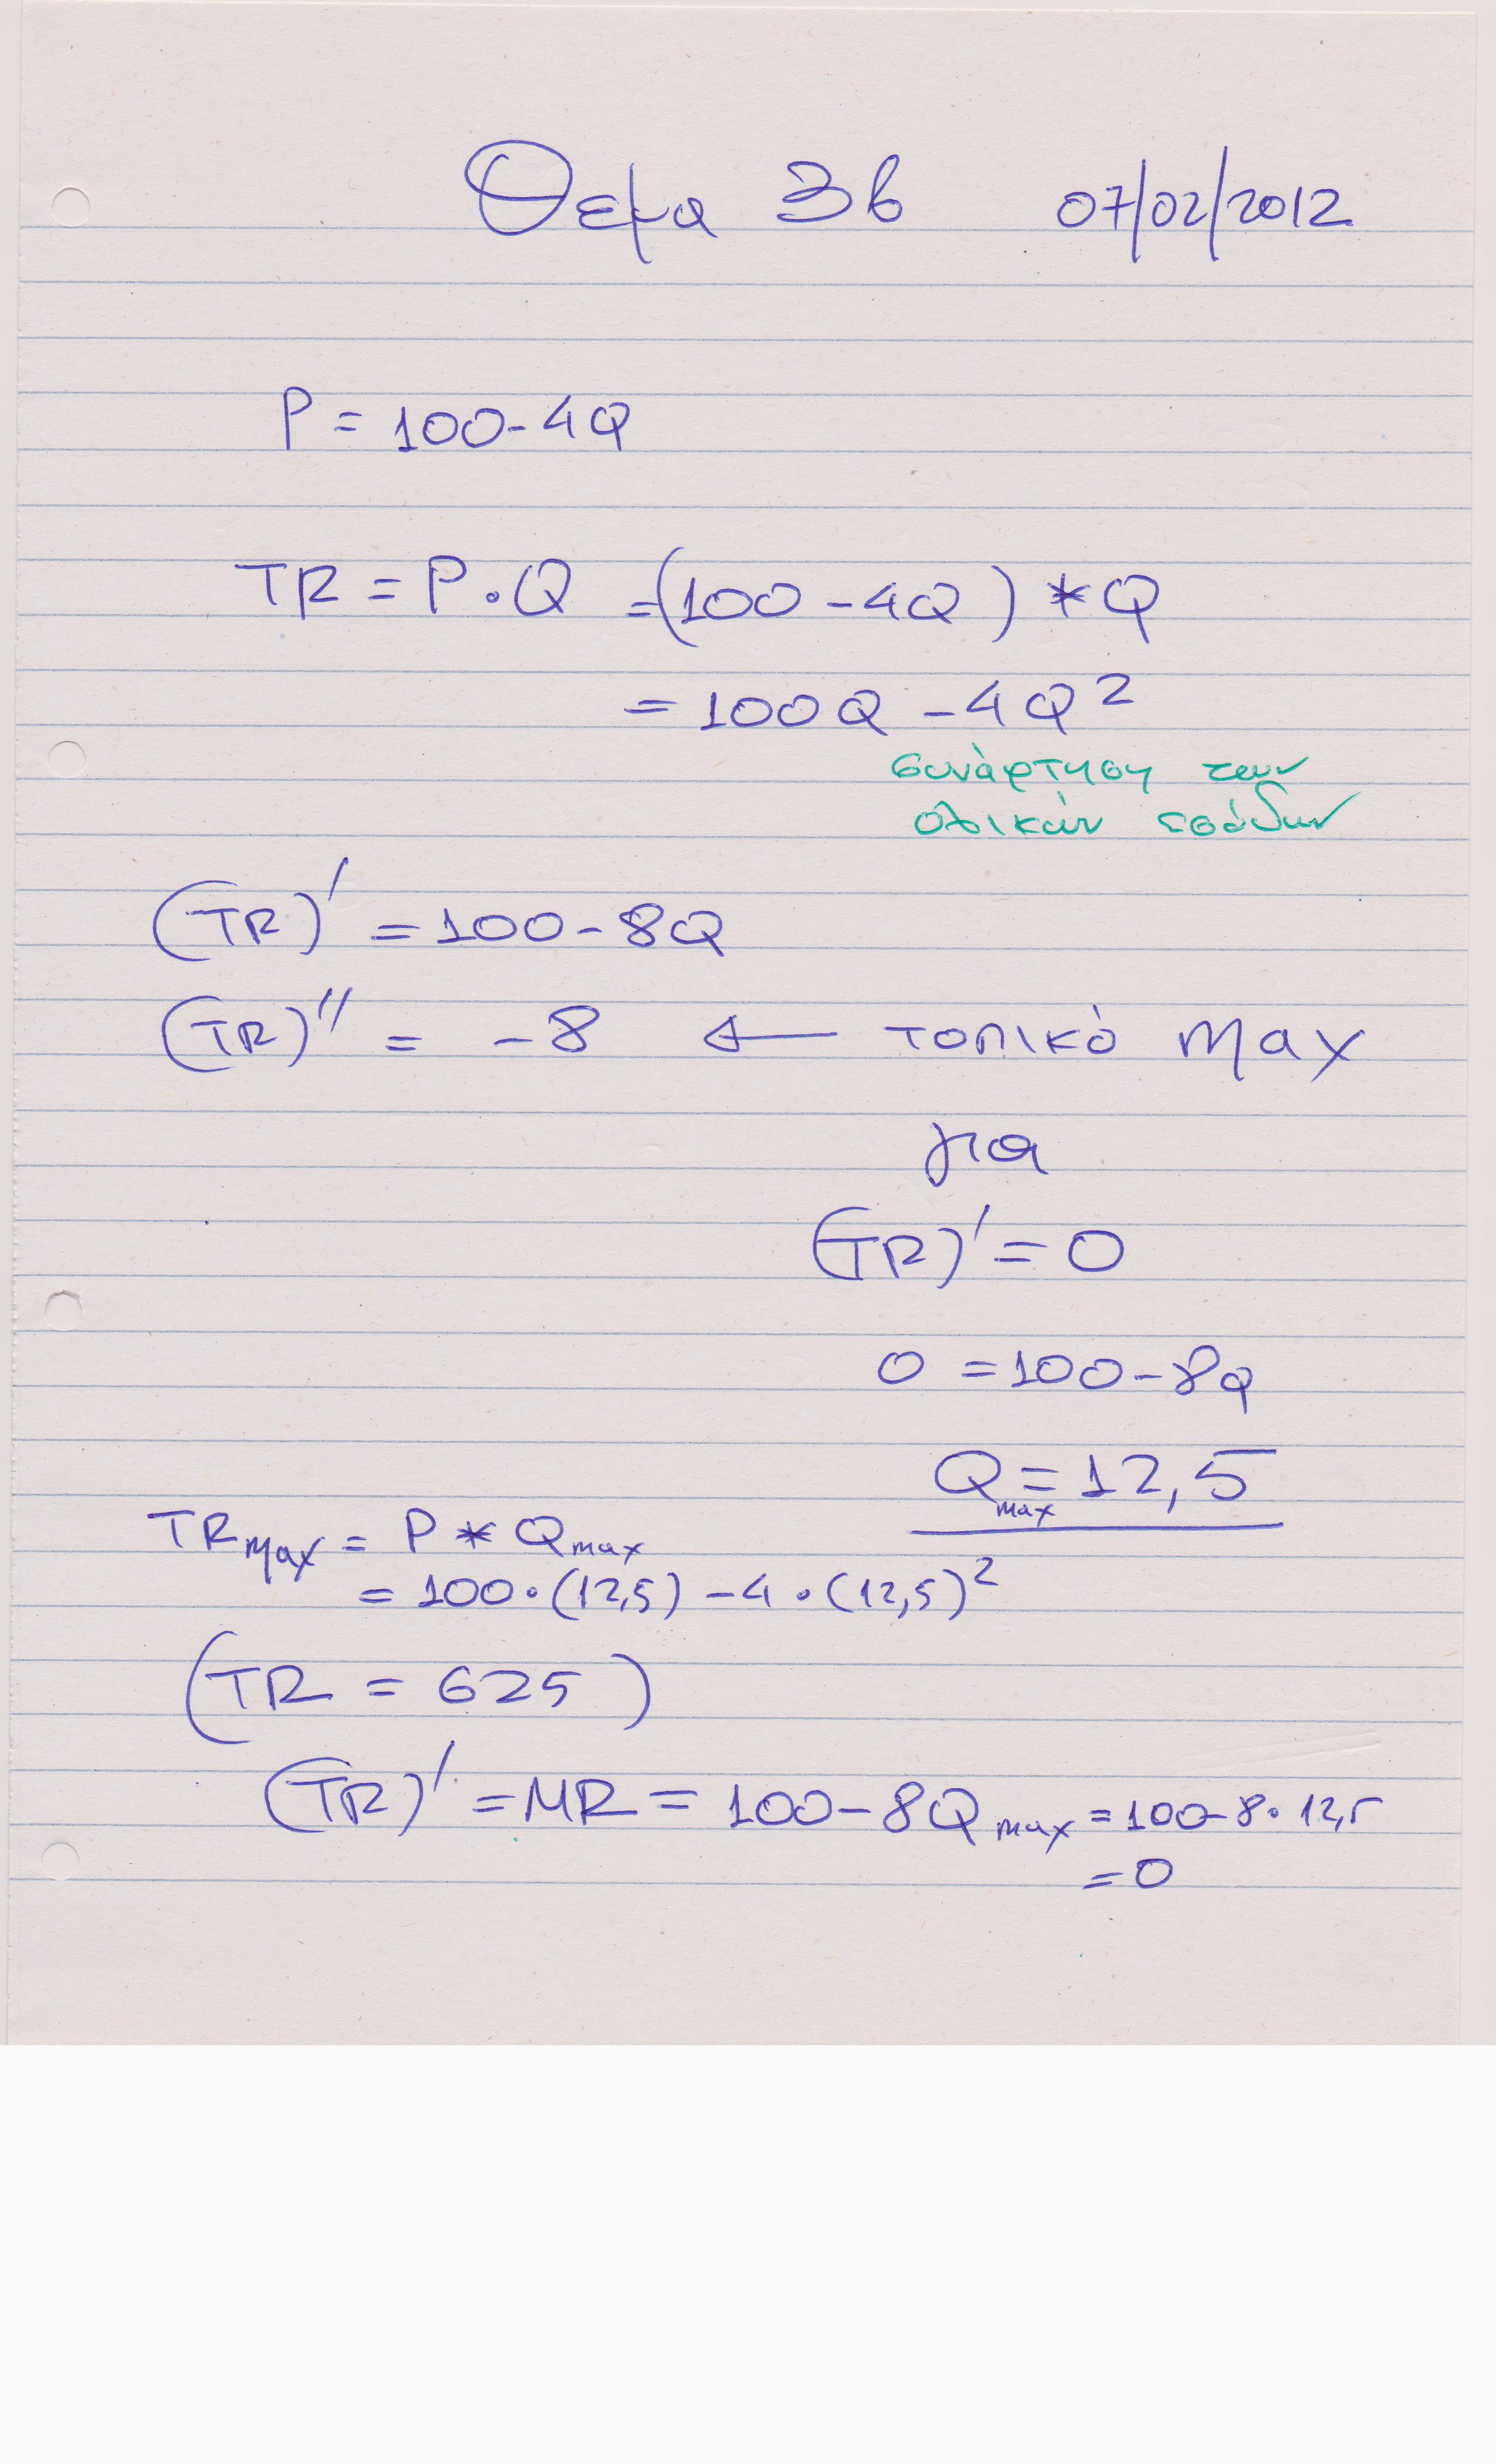 Θεμα 3β 07/02/2012
P = 100-4Q
TR = P.Q =(100-4Q) *Q
= 100Q -4Q²
συνάρτηση των
ολικών εσόδων
(TR)' = 100-8Q
(TR)'' = -8 ← τοπικό max
για
(TR)' = 0
0 = 100-8Q
Qmax = 12,5
TRmax = P * Qmax
= 100·(12,5) -4·(12,5)²
(TR = 625)
(TR)' = MR = 100-8Qmax = 100-8·12,5
= 0